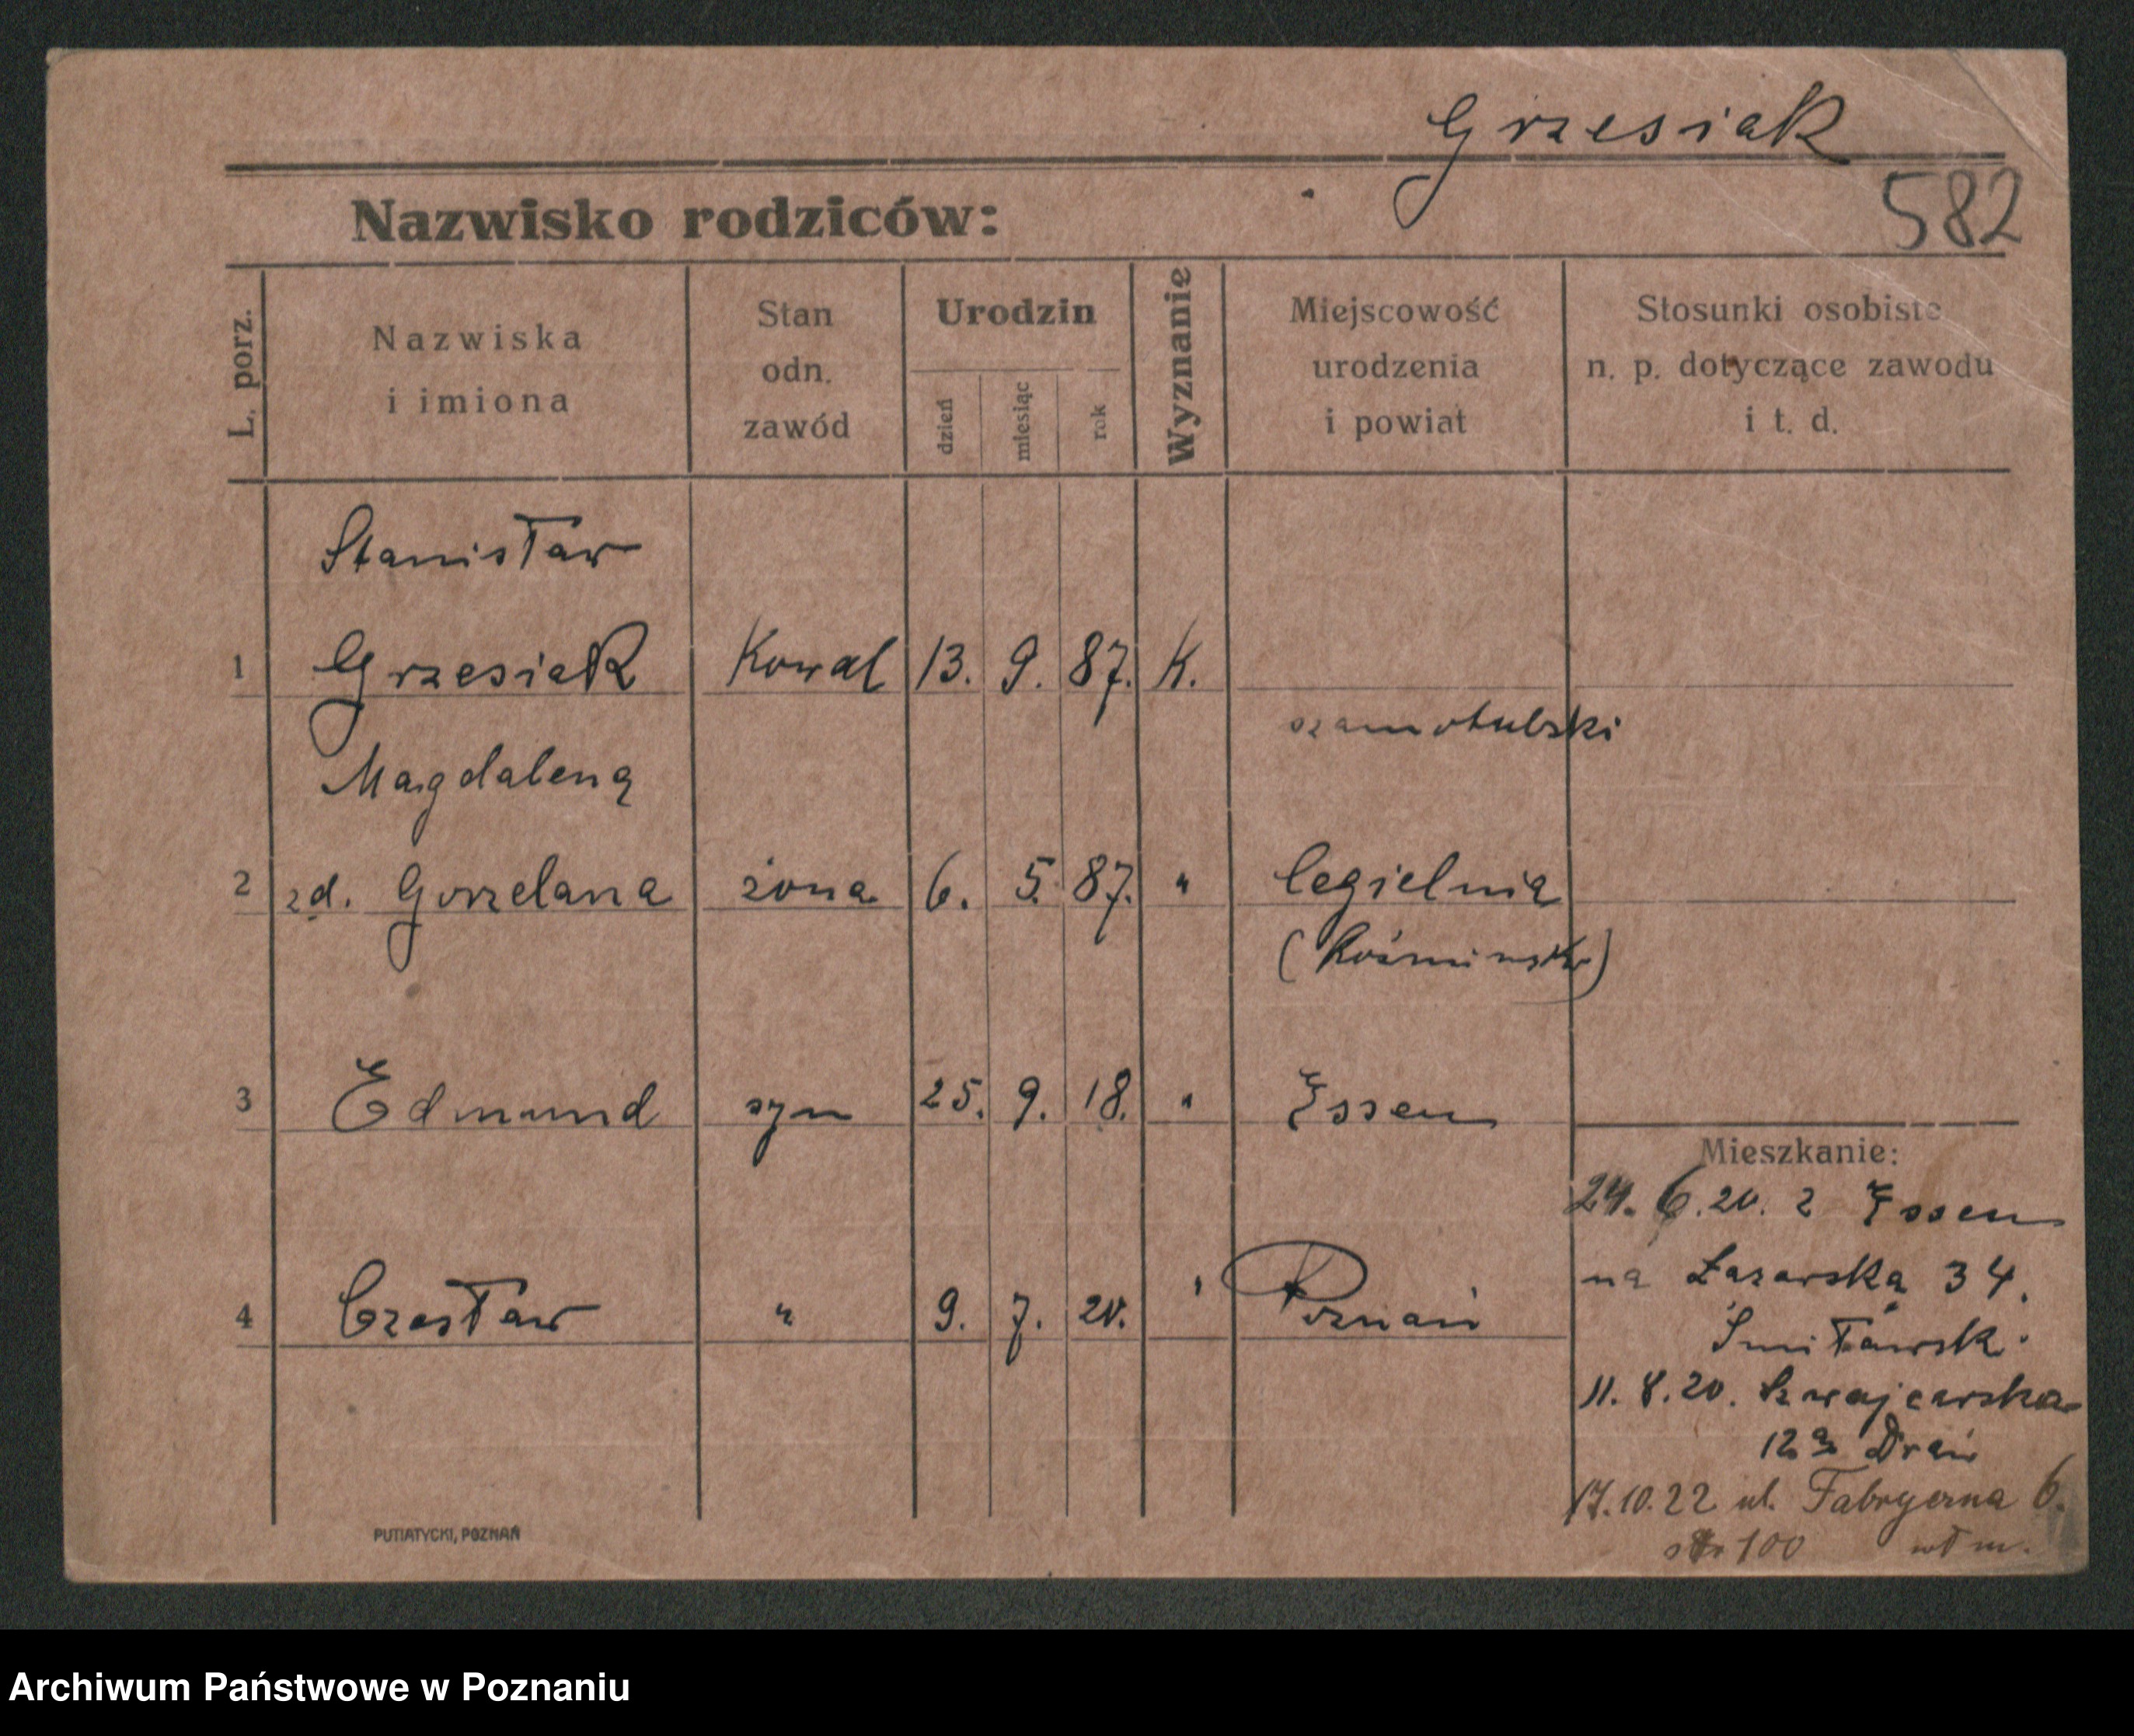 Grzesiak
582
Nazwisko rodziców:
L. porz.
Nazwiska
i imiona
Stan
odn.
zawód
Urodzin
dzień
miesiąc
rok
Wyznanie
Miejscowość
urodzenia
i powiat
Stosunki osobiste
n. p. dotyczące zawodu
i t. d.
Stanisław
1 Grzesiak Kowal 13. 9. 87. K.
szamotulski
Magdalena
2 zd. Gorzelana żona 6. 5. 87. " Cegielnia
(Koźmińsk)
3 Edmund syn 25. 9. 18. " Essen
Mieszkanie:
24. 6. 20. z Essen
na Łazarska 34.
4 Czesław " 9. 7. 20. " Poznań
11. 8. 20. Szwajcarska
12a
17. 10. 22 ul. Fabryczna 6.
100 wł m.
PUTIATYCKI, POZNAŃ
Archiwum Państwowe w Poznaniu